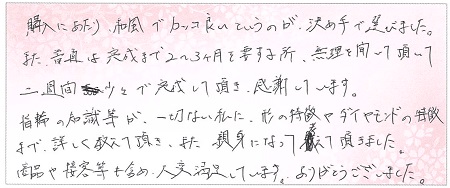 購入にあたり、和風でカッコ良いというのが、決め手で選びました。
また、普通は完成まで2~3ヶ月を要する所、無理を聞いて頂いて
二週間少々で完成して頂き、感謝しています。
指輪の知識等が、一切ない私に、形の特徴やダイヤモンドの特徴
まで、詳しく教えて頂き、また親身になって教えて頂きました。
商品や接客等も含め、大変満足しています。ありがとうございました。